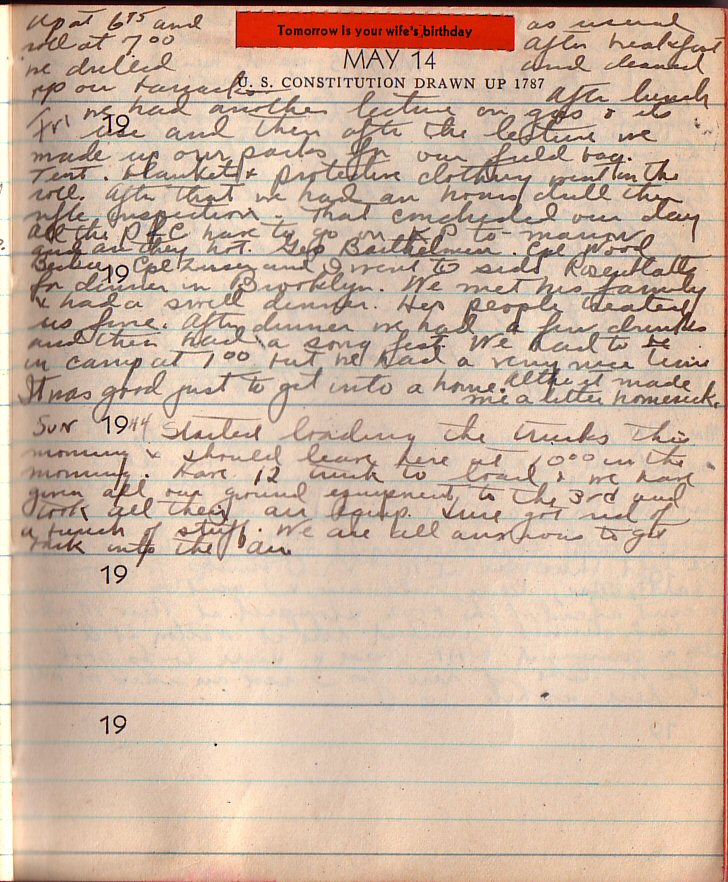 Tomorrow is your wife's birthday
MAY 14
U. S. CONSTITUTION DRAWN UP 1787
Up at 6 15 and as usual
roll at 7 00 After breakfast
we drilled and cleaned
up our barracks After lunch
Fri 19 we had another lecture on gas & its
use and then after the lecture we
made up our packs for our field bag.
Tent. blankets & protective clothing went in the
roll. After that we had an hours drill then
rifle inspection. That concluded our day
All the PFC have to go on KP to-morrow
and are they hot. Geo Barthelmess. Cpl Wood
19 Cpl and I went to Sid Rosenthalls
for dinner in Brooklyn. We met his family
& had a swell dinner. His people treated
us fine. After dinner we had a few drinks
and then had a song fest. We had to be
in camp at 1 00 but we had a very nice time
It was good just to get into a home. Altho it made
me a little homesick.
Sun 1944 Started loading the trucks this
morning & should leave here at 10 00 in the
morning. Have 12 truck to load & we have
given all our ground equipment to the 3rd and
took all their air equip. Sure got rid of
a bunch of stuff. We are all anxious to get
back into the air
19
19